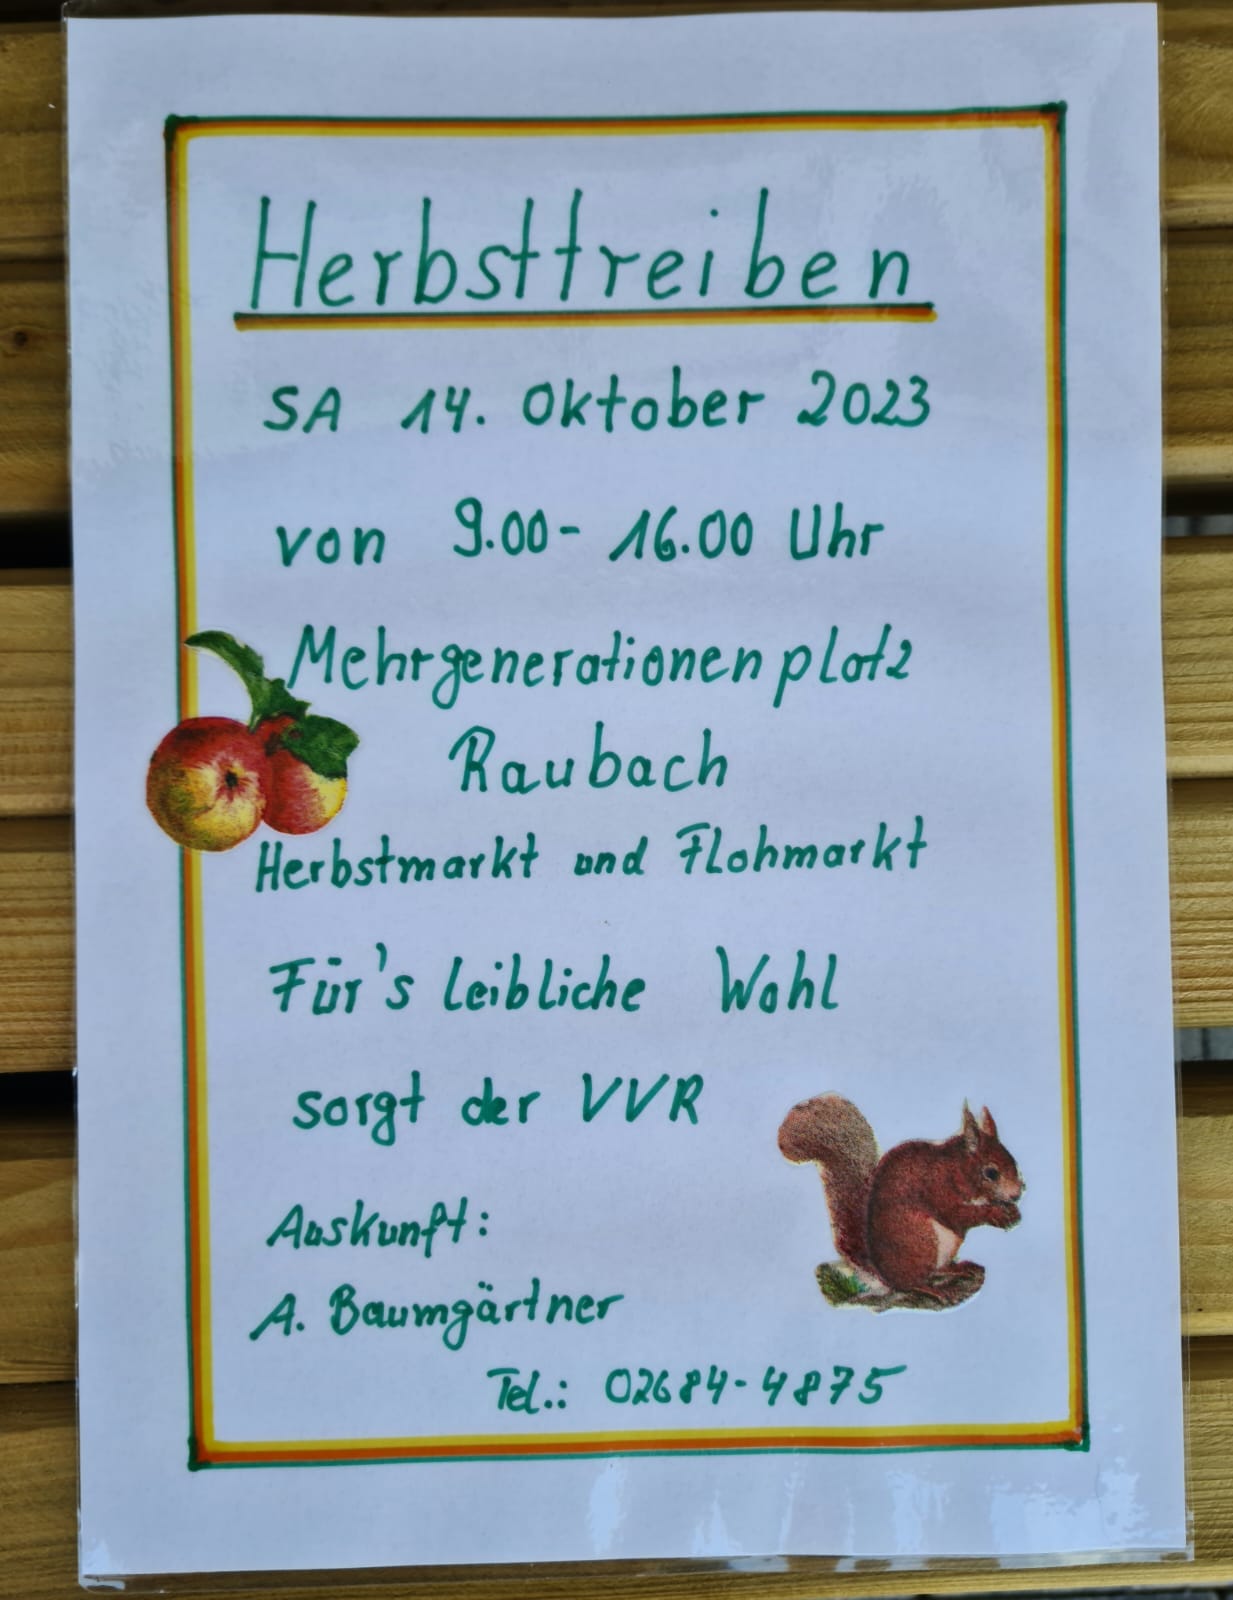 Herbsttreiben
SA 14. Oktober 2023
von 9.00- 16.00 Uhr
Mehrgenerationenplatz
Raubach
Herbstmarkt und Flohmarkt
Für's leibliche Wohl
sorgt der VVR
Auskunft:
A. Baumgärtner
Tel.: 02684-4875